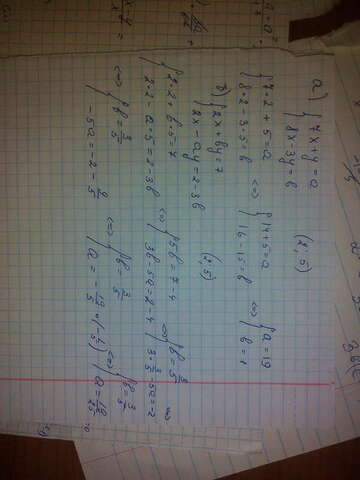 а) { 7x+y=a
{ 8x-3y=b (2; 5)
{ 7·2+5=a
{ 8·2-3·5=b <=> { 14+5=a
{ 16-15=b <=> { a=19
{ b=1
в) { 2x+by=7
{ 2x-ay=2-3b (2; 5)
{ 2·2+b·5=7
{ 2·2-a·5=2-3b <=> { 5b=7-4
{ 3b-5a=2-4 <=> { b=3/5
{ 3·3/5-5a=-2 <=>
<=> { b=3/5
{ -5a=-2-9/5 <=> { b=3/5
{ a=-19/5:(-5) <=> { b=3/5
{ a=19/25